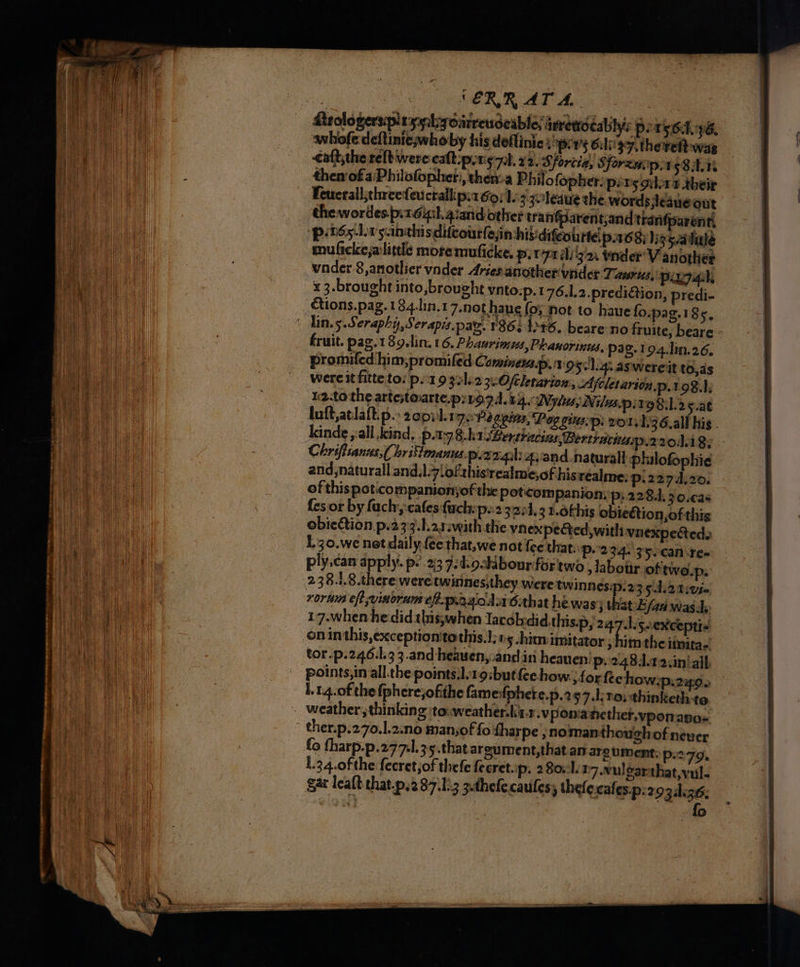 ERRATA.
whose destinie, who by his destinie
east, the rest were east. Sforcia, Sforza.
them of a Philosopher, then a Philosopher. their
seuerall, three seuerall. leaue the words, leaue out
the wordes. and other transparent, and transparent
in this discourse, in his discourse. a little
musicke, a little more musicke. vnder V another
vnder 8, another vnder Aries another vnder Taurus.
13. brought into, brought vnto. p. 176. l. 2. prediction, predi-
ctions. pag. 184. lin. 17. not haue so, not to haue so. pag. 185.
lin. 5. Seraphij, Serapis. pag. 186. beare no fruite, beare
fruit. pag. 189. lin. 16. Phaurinus, Phauorinus. pag. 194. lin. 26.
promised him, promised Comineus. p. 195. l. 4. as were it to, as
were it fitte to. p. 193. l. 23. Oscletarion, Ascletarion. p. 198. l.
12. to the arte, to arte. Nylus, Nilus. p. 198. l. 25. at
lust, at last. Poggius. p. 201. l. 36. all his
kinde, all kind. p. 220. l. 18.
Christianus, Christmanus. p. 224. l. 4. and naturall philosophie
and, naturall and. l. 7. of this realme, of his realme. p. 227. l. 20.
of this pot companion, of the pot companion. p. 228. l. 30. cas
ses or by such, cases such. p. 232. l. 31. of his obiection, of this
obiection. p. 233. l. 21. with the vnexpected, with vnexpected.
l. 30. we not daily see that, we not see that. p. 234. 35. can re-
ply, can apply. p. 237. l. 9. labour for two, labour of two. p.
238. l. 8. there were twinnes, they were twinnes. p. 235. l. 21. vi-
rorum est, vinorum est. p. 240. l. 16. that he was, that Esau was. l.
17. when he did this, when Iacob did this. p. 247. l. 5. excepti-
on in this, exception to this. l. 15. him imitator, him the imita-
tor. p. 246. l. 33. and heauen, and in heauen. p. 248. l. 12. in all
points, in all the points. l. 19. but see how, for see how. p. 249.
l. 14. of the sphere, of the same sphere. p. 257. l. 10. thinketh to
weather, thinking to weather. vpon anether, vpon ano-
ther. p. 270. l. 2. no man, of so sharpe, no man though of neuer
so sharp. p. 277. l. 35. that argument, that an argument. p. 279.
l. 34. of the secret, of these secret. p. 280. l. 17. vulgar that, vul-
gar least that. p. 287. l. 33. these causes, these cases. p. 293. l. 36.
so